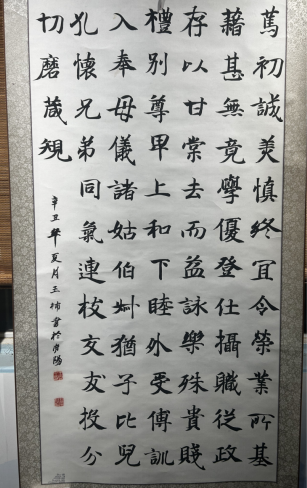 篤初誠美慎終宜令榮業所基
藉甚無竟學優登仕攝職從政
存以甘棠去而益詠樂殊貴賤
禮別尊卑上和下睦外受傅訓
入奉母儀諸姑伯叔猶子比兒
孔懷兄弟同氣連枝交友投分
切磨箴規
辛丑年夏月王書於陽